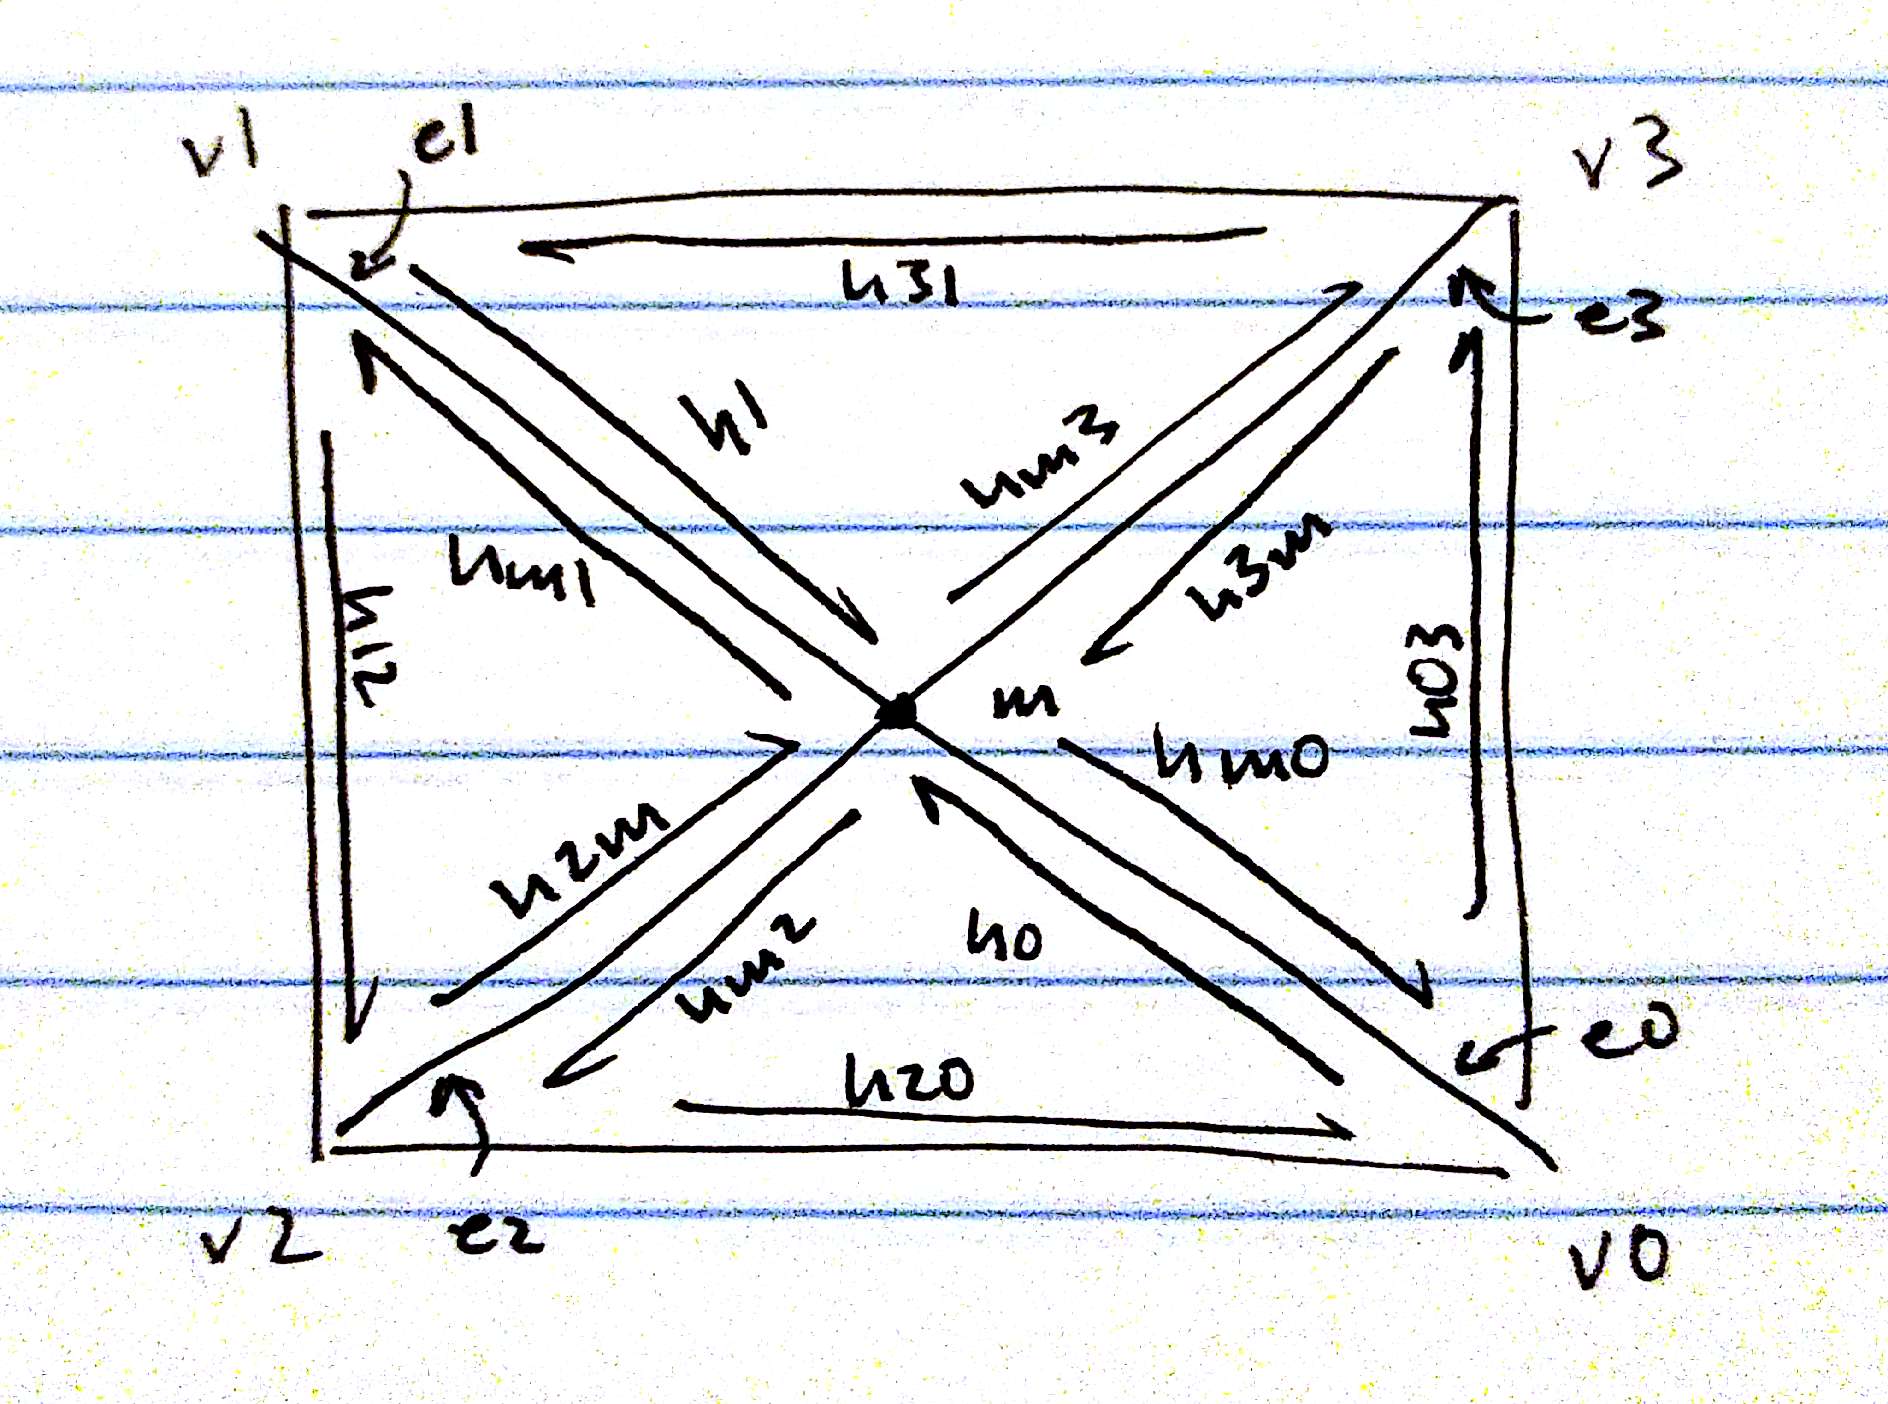 v1
e1
v3
h31
e3
h1
hm3
hm1
h3m
h12
h03
m
hm0
h2m
h0
hm2
e0
h20
v2
e2
v0